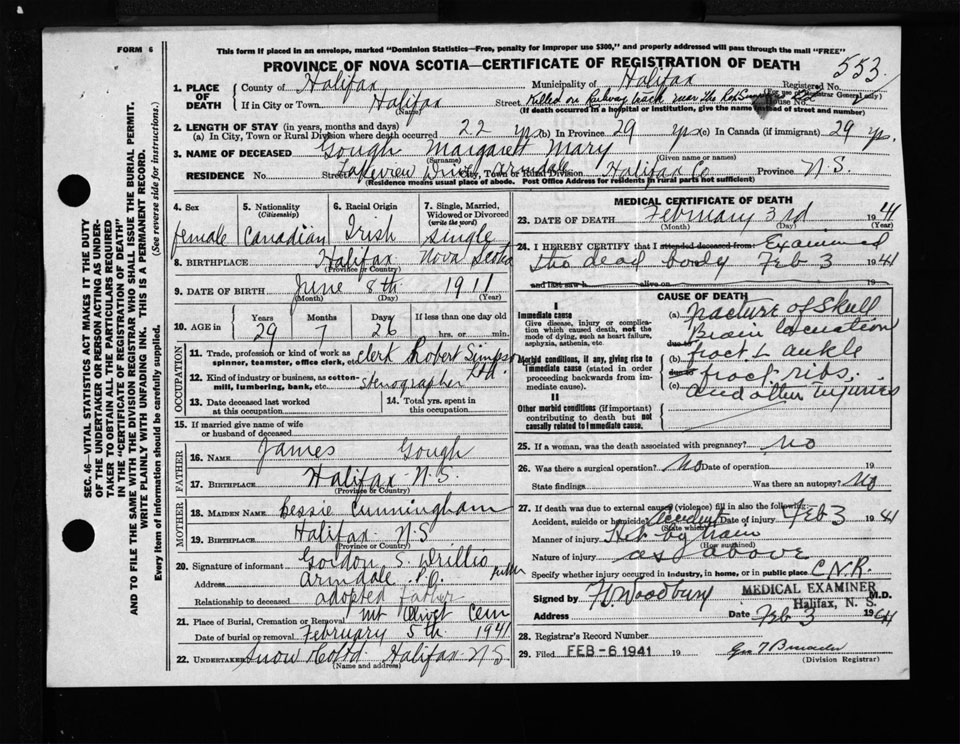 FORM 6
This form if placed in an envelope, marked "Dominion Statistics—Free, penalty for improper use $300," and properly addressed will pass through the mail "FREE"
PROVINCE OF NOVA SCOTIA—CERTIFICATE OF REGISTRATION OF DEATH
553
SEC. 46—VITAL STATISTICS ACT MAKES IT THE DUTY
OF THE UNDERTAKER OR PERSON ACTING AS UNDER-
TAKER TO OBTAIN ALL THE PARTICULARS REQUIRED
IN THE "CERTIFICATE OF REGISTRATION OF DEATH"
AND TO FILE THE SAME WITH THE DIVISION REGISTRAR WHO SHALL ISSUE THE BURIAL PERMIT.
WRITE PLAINLY WITH UNFADING INK. THIS IS A PERMANENT RECORD.
Every item of information should be carefully supplied. (See reverse side for instructions.)
1. PLACE OF DEATH
County of Halifax Municipality of Halifax Registered No.
If in City or Town Halifax Street Killed on Railway track near the
(Name) (If death occurred in a hospital or institution, give the name instead of street and number)
2. LENGTH OF STAY (in years, months and days)
(a) In City, Town or Rural Division where death occurred 22 yrs (b) In Province 29 yrs (c) In Canada (if immigrant) 29 yrs.
3. NAME OF DECEASED Gough Margaret Mary
(Surname) (Given name or names)
RESIDENCE No. Street Lakeview Drive City, Town or Rural Division Armdale Halifax Co Province N.S.
(Residence means usual place of abode. Post Office Address for residents in rural parts not sufficient)
4. Sex female
5. Nationality (Citizenship) Canadian
6. Racial Origin Irish
7. Single, Married, Widowed or Divorced (write the word) Single
8. BIRTHPLACE Halifax Nova Scotia
(Province or Country)
9. DATE OF BIRTH June 8th 1911
(Month) (Day) (Year)
10. AGE in Years Months Days If less than one day
29 7 26 hrs. or min.
OCCUPATION
11. Trade, profession or kind of work as spinner, teamster, office clerk, clerk Robert Simpson Ltd.
12. Kind of industry or business, as cotton-mill, lumbering, bank, etc. stenographer
13. Date deceased last worked at this occupation
14. Total yrs. spent in this occupation
15. If married give name of wife or husband of deceased
FATHER
16. NAME James Gough
17. BIRTHPLACE Halifax N.S.
(Province or Country)
MOTHER
18. MAIDEN NAME Bessie Cunningham
19. BIRTHPLACE Halifax N.S
(Province or Country)
20. Signature of informant Gordon S. Drillio
Address Armdale P.O.
Relationship to deceased adopted father
21. Place of Burial, Cremation or Removal Mt Olivet Cem
Date of burial or removal February 5th 1941
22. UNDERTAKER Snow & Co Ltd. Halifax N.S
(Name and address)
MEDICAL CERTIFICATE OF DEATH
23. DATE OF DEATH February 3rd 1941
(Month) (Day)
24. I HEREBY CERTIFY that I attended deceased from: Examined
the dead body Feb 3 1941
and last saw h alive on 19
CAUSE OF DEATH
I
Immediate cause
Give disease, injury or complication which caused death, not the mode of dying, such as heart failure, asphyxia, asthenia, etc.
(a) Fracture of Skull
Brain laceration
due to
Morbid conditions, if any, giving rise to immediate cause (stated in order proceeding backwards from immediate cause).
(b) fract L ankle
due to
(c) fract ribs,
and other injuries
II
Other morbid conditions (if important) contributing to death but not causally related to immediate cause.
25. If a woman, was the death associated with pregnancy? No
26. Was there a surgical operation? No Date of operation 19
State findings Was there an autopsy? No
27. If death was due to external causes (violence) fill in also the following:
Accident, suicide or homicide? Accident Date of injury Feb 3 1941
(State which)
Manner of injury Hit by train
(How sustained)
Nature of injury as above
Specify whether injury occurred in industry, in home, or in public place C.N.R.
Signed by W Woodbury M.D.
MEDICAL EXAMINER
Halifax, N. S.
Address Feb 3 1941
28. Registrar's Record Number
29. Filed FEB - 6 1941 19
(Division Registrar)